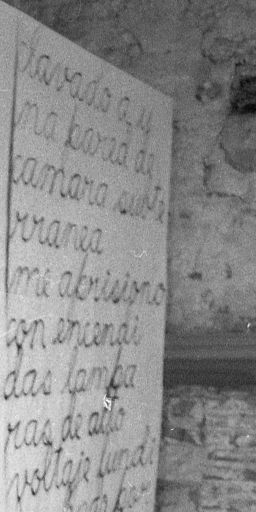 clavado a, y
na pared de
camara subte
rranea
me aprisiono
con encendi
das lampa
ras de alto
voltaje lundi